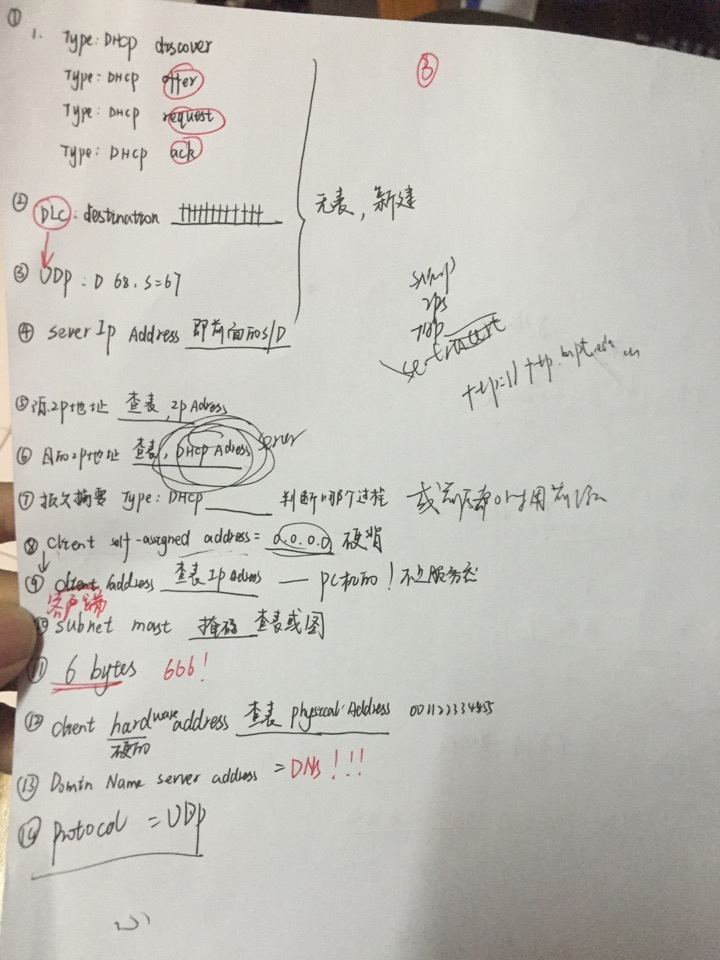 ①
1. Type: DHCP discover
Type: DHCP offer
Type: DHCP request
Type: DHCP ack
② DLC: destination
③ UDP: D 68. S=67
④ sever Ip Address 即前面的S/D
无表，新建
③
⑤ 源2p地址 查表，2p Adress
⑥ 目的2p地址 查表，DHCP Adress server
⑦ 报文摘要 Type: DHCP______ 判断哪个过程
⑧ Client self-assigned address = 0.0.0.0 硬背
⑨ client Address 查表 Ip Adress — PC机的！不是服务器
客户端
⑩ subnet mast 掩码 查表或图
⑪ 6 bytes 666!
⑫ Client hardware address 查表 physical Address 001122334455
硬的
⑬ Domin Name server address = DNS!!!
⑭ protocol = UDP